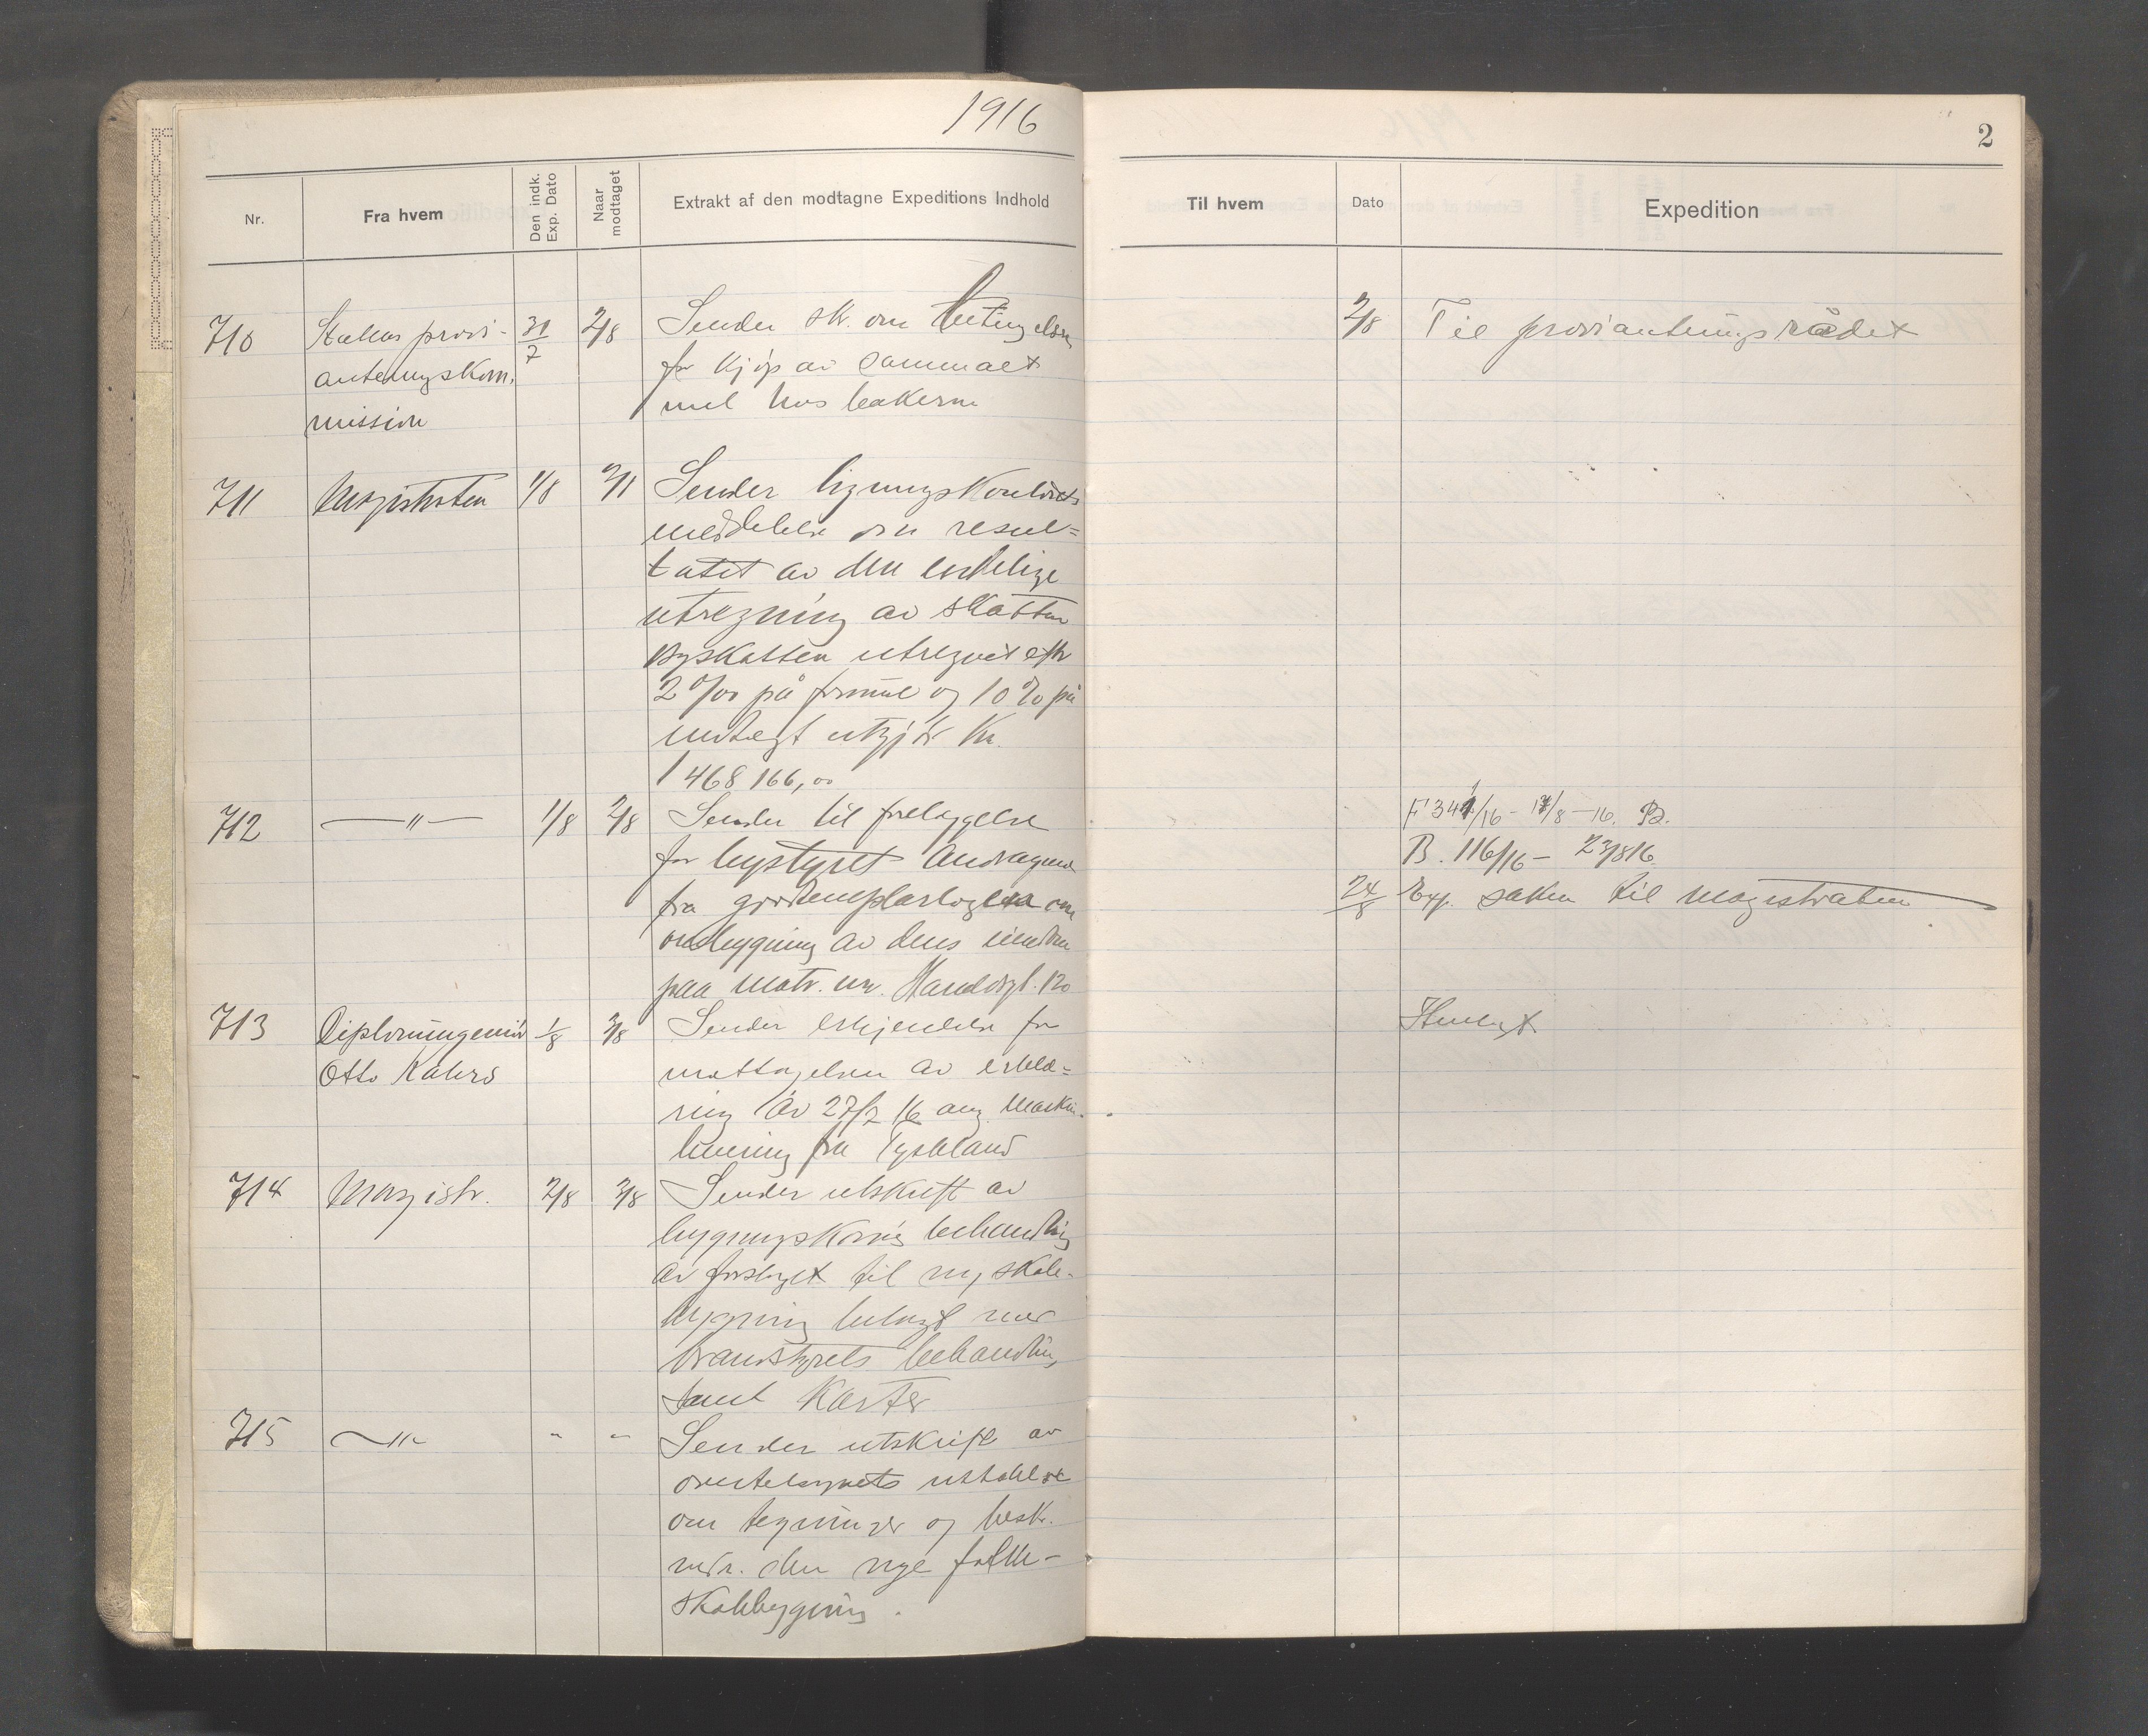 1916
2
Nr.
Fra hvem
Den indk. Exp. Dato
Naar modtaget
Extrakt af den modtagne Expeditions Indhold
Til hvem
Dato
Expedition
710
Statens provi-
anteringskom.
mission
31/7
2/8
Sender skr. om betingelser
for kjøp av sammalt
mel hos bakerne
2/8
Til provianteringsrådet
711
Magistraten
1/8
2/8
Sender ligningskontorets
meddelelse om resul=
tatet av den endelige
utregning av skatten
Byskatten utregnet efter
2 0/00 på formue og 10 % på
indtægt utgjør Kr.
1 468 166,00
712
—"—
1/8
2/8
Sender til forelæggelse
for bystyret Andragende
fra godtemplarlogen om
ombygning av dens eiendom
paa matr. nr. Haraldsgt. 120
F 341/16 - 17/8 - 16. B.
B. 116/16 - 23/8 16
24/8
Exp. saken til magistraten
713
Diplomingeniør
Otto Kahrs
1/8
3/8
Sender erkjendelse for
mottagelsen av erklæ=
ring av 27/7 16 ang. maskin-
levering fra Tyskland
Henlagt
714
Magistr.
2/8
3/8
Sender utskrift av
bygningskom's behandling
av forslaget til ny skole-
bygning belagt med
brandstyrets behandling
samt Karter
715
—"—
"
"
Sender utskrift av
uttalelse
om tegninger og besk.
vedr. den nye folke-
skolebygning.